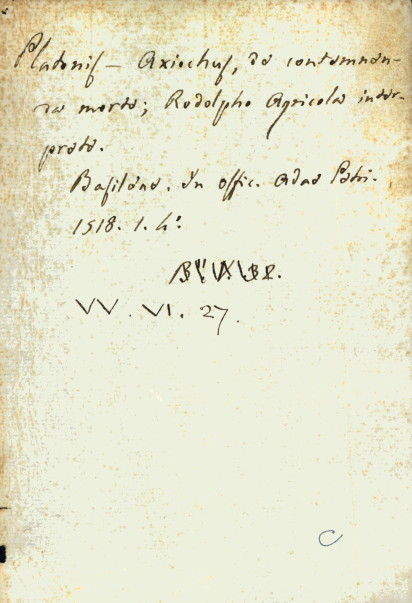 Platonis – Axiochus, de contemnen-
da morte; Rodolpho Agricola inter-
prete.
Basileae. In offic. Adae Petri.
1518. 1. 4°.
VV. VI. 27.
C